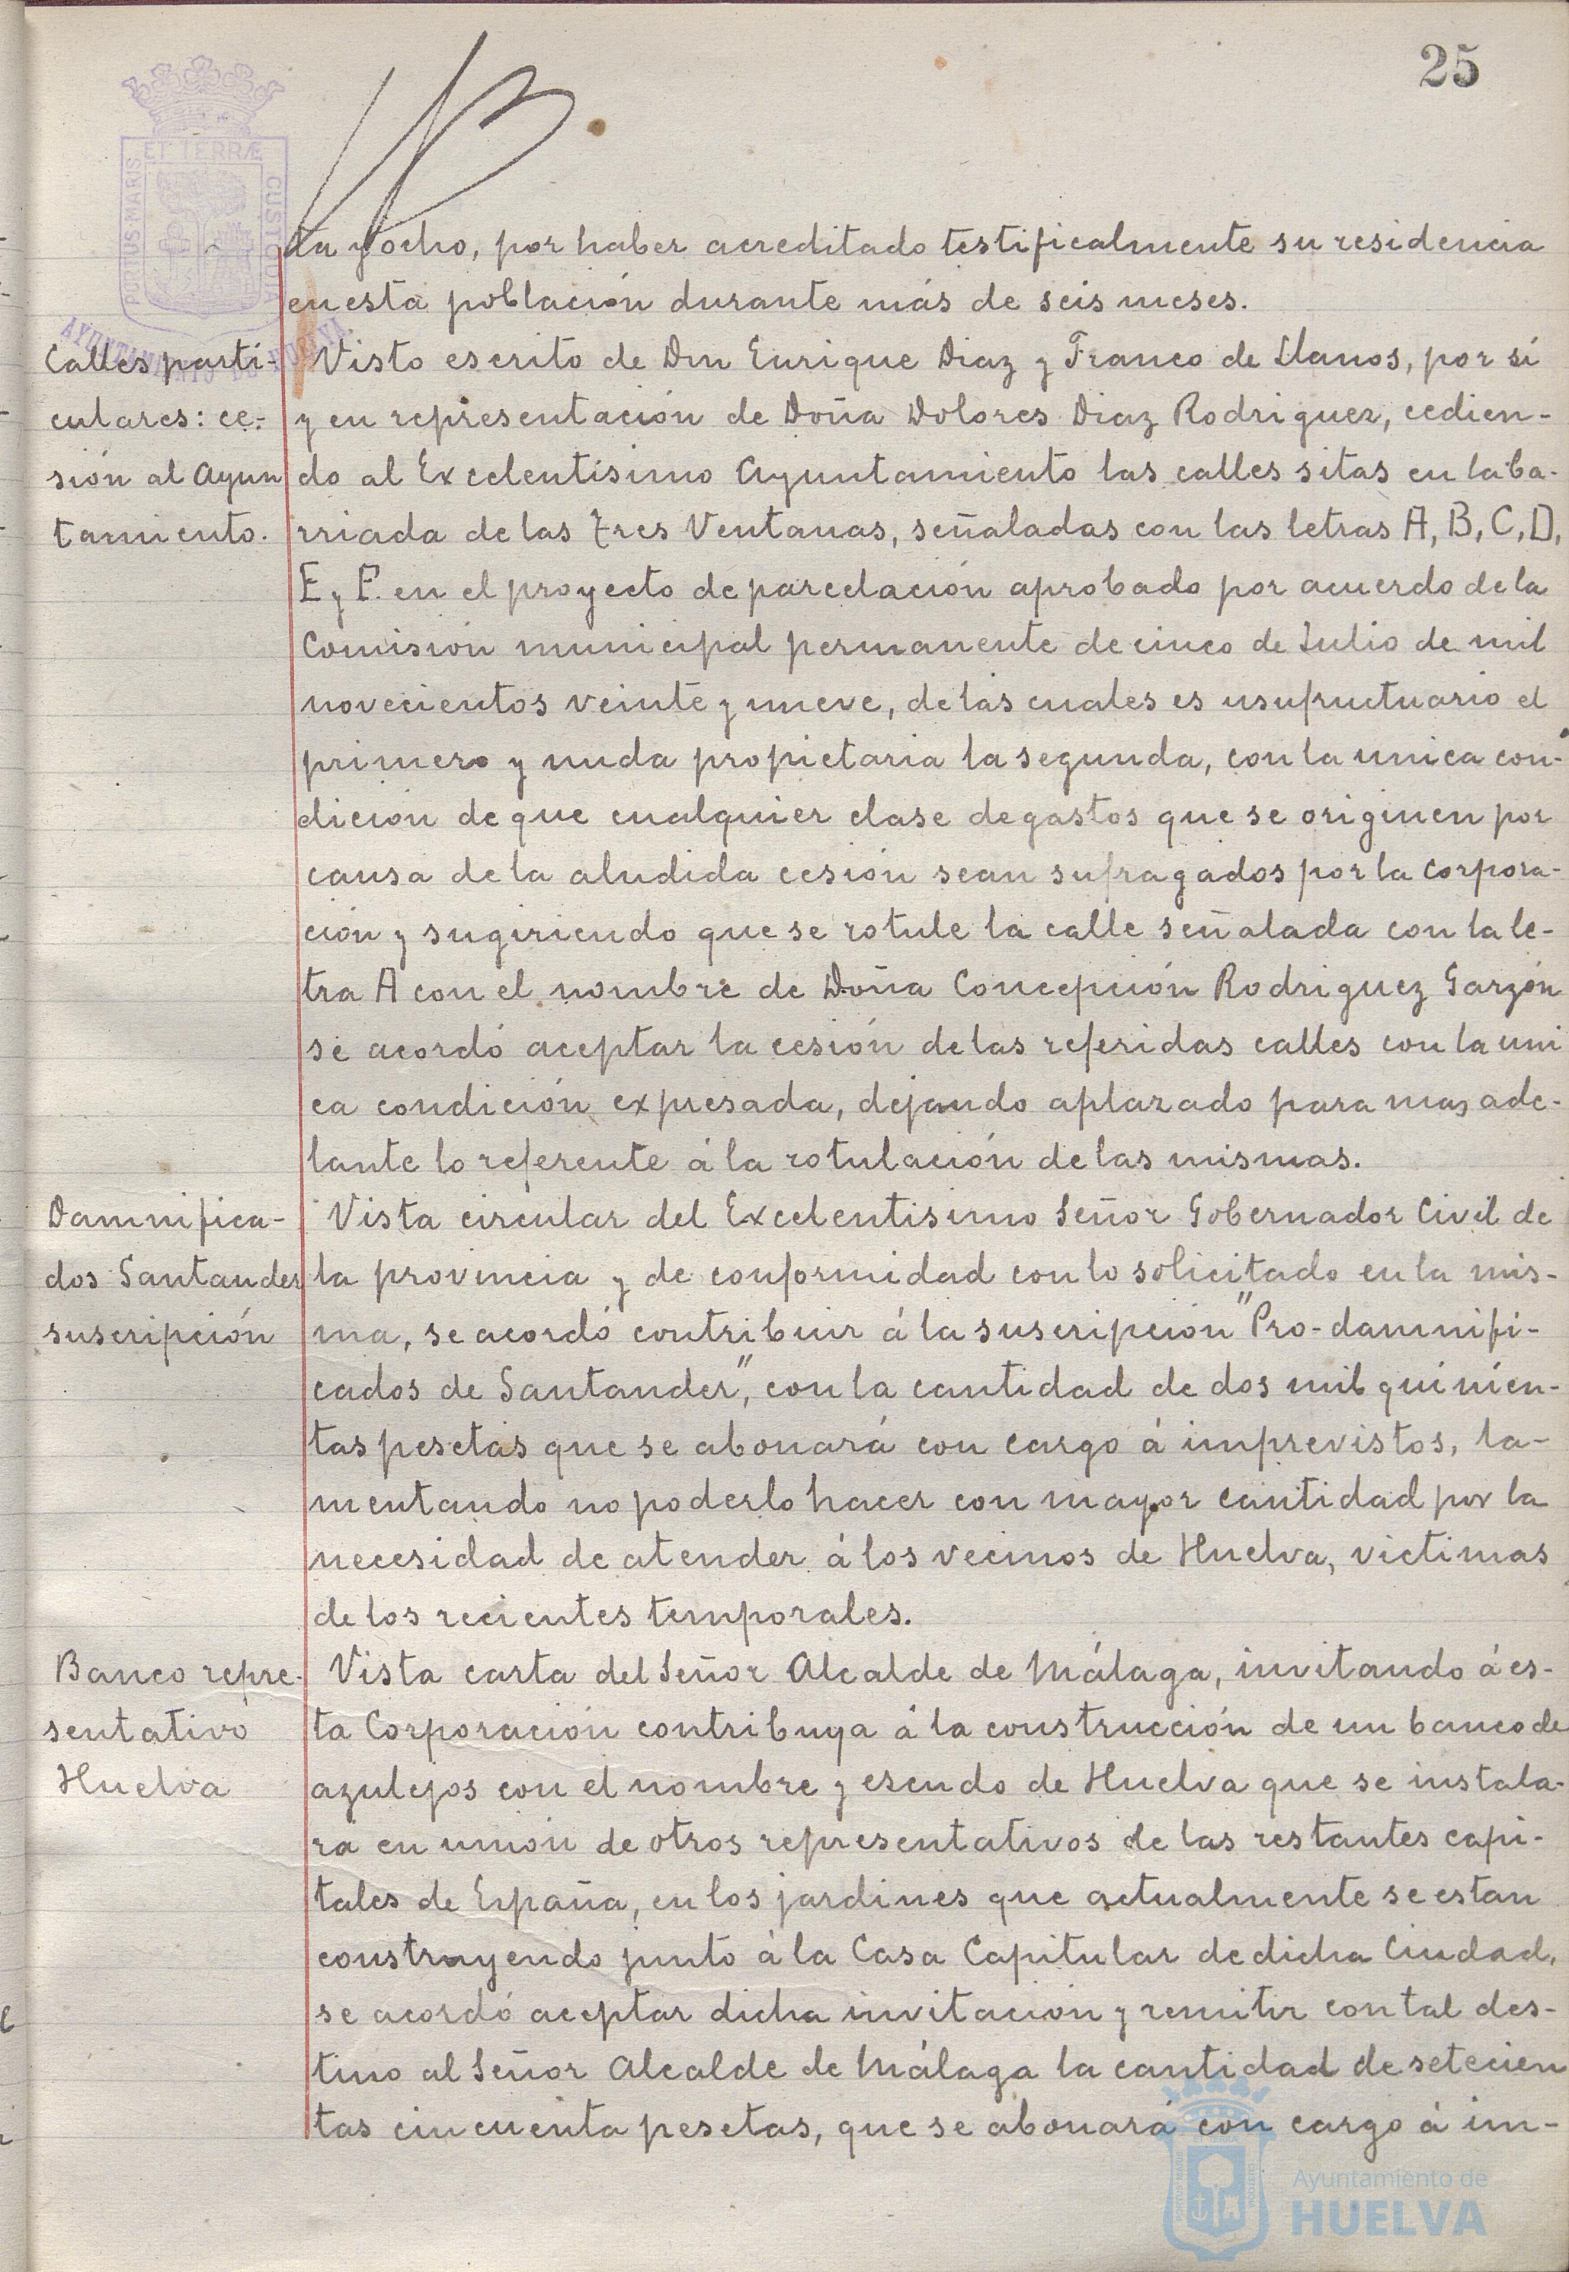 25
PORTUS MARIS
ET TERRÆ
CUSTODIA
AYUNTAMIENTO DE HUELVA
ta y ocho, por haber acreditado testificalmente su residencia
en esta población durante más de seis meses.
Calles parti-
culares: ce-
sión al Ayun
tamiento.
Visto escrito de Don Enrique Diaz y Franco de Llanos, por sí
y en representación de Doña Dolores Diaz Rodriguez, cedien-
do al Excelentísimo Ayuntamiento las calles sitas en la ba-
rriada de las Tres Ventanas, señaladas con las letras A, B, C, D,
E y F. en el proyecto de parcelación aprobado por acuerdo de la
Comisión municipal permanente de cinco de Julio de mil
novecientos veinte y nueve, de las cuales es usufructuario el
primero y nuda propietaria la segunda, con la unica con-
dición de que cualquier clase de gastos que se originen por
causa de la aludida cesión sean sufragados por la Corpora-
ción y sugiriendo que se rotule la calle señalada con la le-
tra A con el nombre de Doña Concepción Rodriguez Garzón
se acordó aceptar la cesión de las referidas calles con la uni
ca condición expresada, dejando aplazado para mas ade-
lante lo referente á la rotulación de las mismas.
Damnifica-
dos Santander
suscripción
Vista circular del Excelentisimo Señor Gobernador Civil de
la provincia y de conformidad con lo solicitado en la mis-
ma, se acordó contribuir á la suscripción "Pro-damnifi-
cados de Santander", con la cantidad de dos mil quinien-
tas pesetas que se abonará con cargo á imprevistos, la-
mentando no poderlo hacer con mayor cantidad por la
necesidad de atender á los vecinos de Huelva, victimas
de los recientes temporales.
Banco repre-
sentativo
Huelva
Vista carta del Señor Alcalde de Málaga, invitando á es-
ta Corporación contribuya á la construcción de un banco de
azulejos con el nombre y escudo de Huelva que se instala-
rá en unión de otros representativos de las restantes capi-
tales de España, en los jardines que actualmente se estan
construyendo junto á la Casa Capitular de dicha Ciudad,
se acordó aceptar dicha invitación y remitir con tal des-
tino al Señor Alcalde de Málaga la cantidad de setecien
tas cincuenta pesetas, que se abonará con cargo á im-
Ayuntamiento de
HUELVA